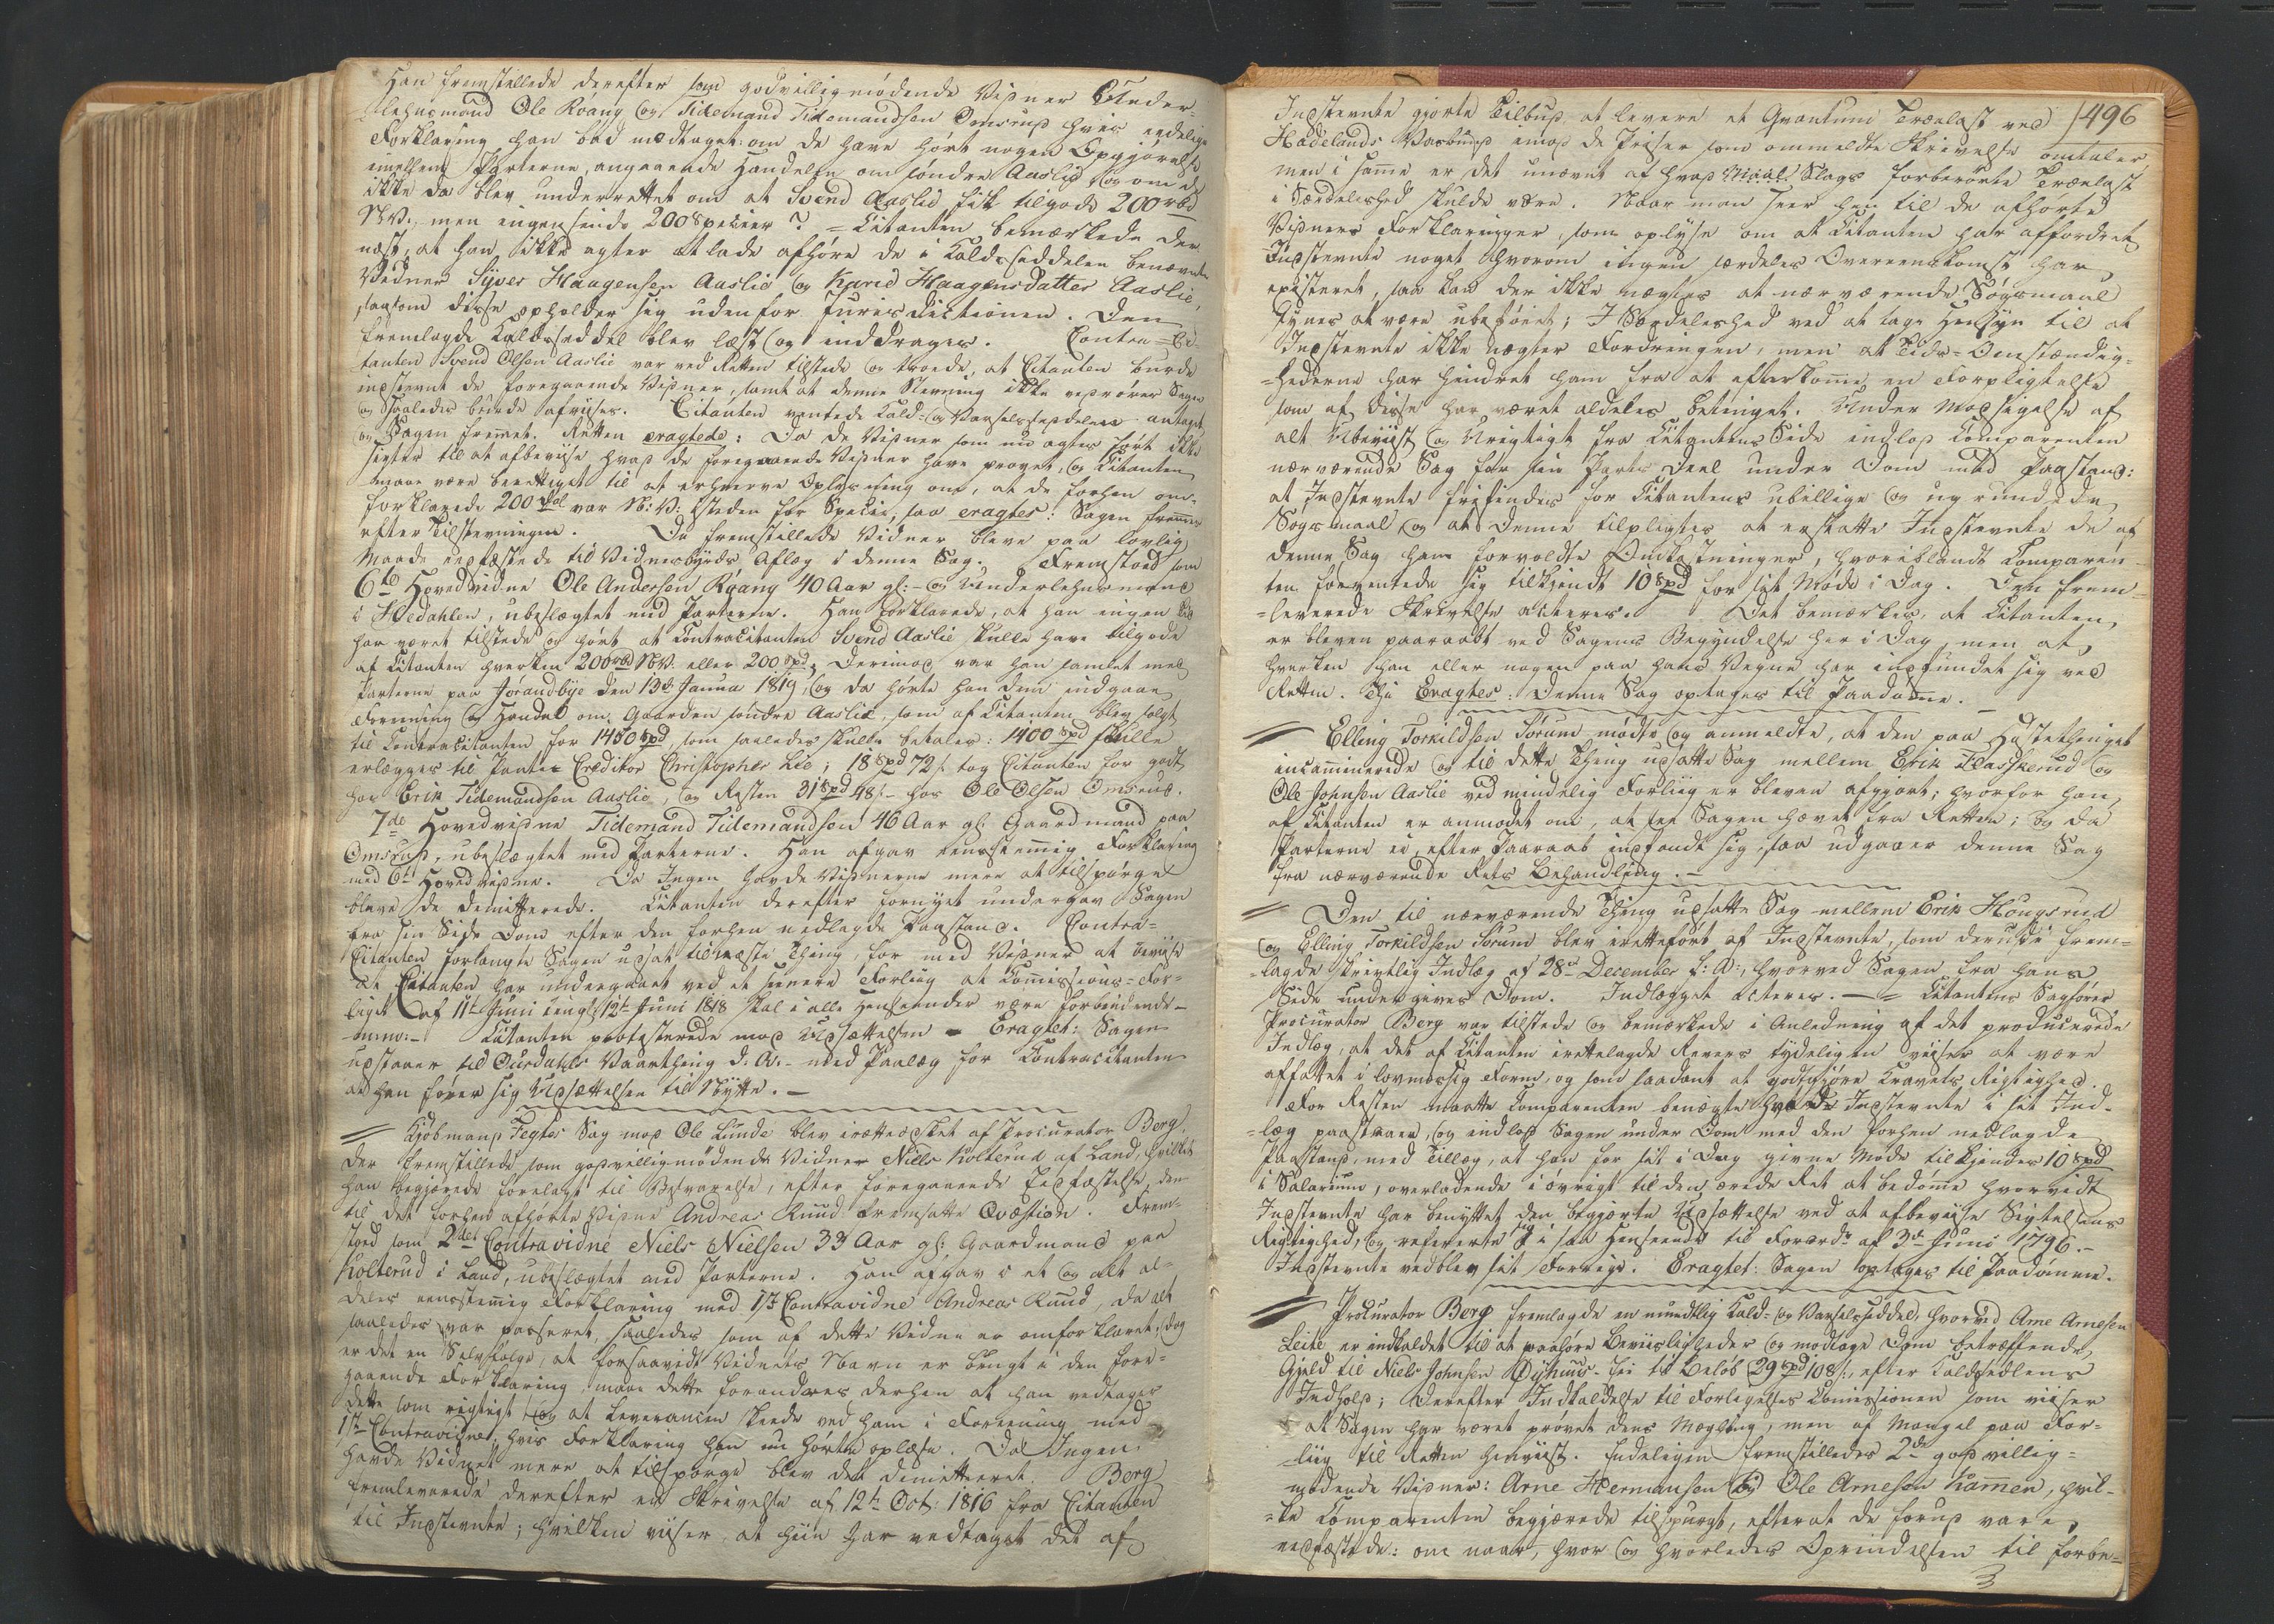 Han fremstillede derefter som godvilligmødende Vidner Under-
Lehnsmand Ole Roang og Tidemand Tidemandsen Omsrud hvis eedelige
Forklaring han bad modtaget: om de have hørt nogen Opgjørelse
imellem Parterne, angaaende Handelen om søndre Aaslie og om de
ikke da blev underrettet om at Svend Aaslie fik tilgode 200 rbd
N.V., men ingensinde 200 Specier? = Citanten bemærkede der
næst, at han ikke agter at lade afhøre de i Kaldsseddelen benævnte
Vidner Syver Haagensen Aaslie og Kari Haagensdatter Aaslie,
saasom disse opholder sig udenfor Jurisdictionen. Den
fremlagde Kaldsseddel blev læst og inddrages. Contra-Ci-
tanten Svend Olsen Aaslie var ved Retten tilstede og troede, at Citanten burde
indstevnt de foregaaende Vidner, samt at denne Stevning ikke vedrører Sagen
og saaledes burde afvises. Citanten ventede Kald- og Varselsseddelen antaget
og Sagen fremet. Retten eragtede: Da de Vidner som nu agtes ført ikke
sigter til at afbevise hvad de foregaaende Vidner have provet, og Citanten
maae være berettiget til at erhverve Oplysning om, at de forhen om-
forklarede 200 Dal var N: V: isteden for Specie, saa eragtes: Sagen fremes
efter Tilstevningen. De fremstillede Vidner bleve paa lovlig
Maade eedfæstede til Vidnesbyrds Aflæg i denne Sag. Fremstoed som
6te Hovedvidne Ole Andersen Roang 40 Aar gl: og Underlehnsmand
i Hedahlen, ubeslægtet med Parterne. Han forklarede, at han ingen Tid
har været tilstede og hørt at Contracitanten Svend Aaslie skulle have tilgode
af Citanten hverken 200 rbd N.V. eller 200 Spd; Derimod var han samlet med
Parterne paa Jørandbye den 13de Janua 1819, og da hørte han dem indgaae
Forening og Handel om Gaarden søndre Aaslie, som af Citanten blev solgt
til Contracitanten for 1450 Spd, som saaledes skulle betales: 1400 Spd skulle
erlægges til Pante Creditor Christopher Lie; 18 Spd 72 s. tog Citanten for godt
hos Erik Tidemandsen Aaslie, og Resten 31 Spd 48 s. hos Ole Olsen Omsrud.
7de Hovedvidne Tidemand Tidemandsen 46 Aar gl: Gaardmand paa
Omsrud, ubeslægtet med Parterne. Han afgav eensstemmig Forklaring
med 6te Hovedvidne. Da Ingen havde Vidnerne mere at tilspørge
bleve de demitterede. Citanten derefter fornyet undergav Sagen
fra sin Side Dom efter den forhen nedlagde Paastand. Contra-
Citanten forlangte Sagen udsat til næste Thing, for med Vidner at bevise
at Citanten har undergaaet ved et senere Forliig at Commissions-For-
liget af 11te Juni 12te Juni 1818 skal i alle Henseender være forbindende
Citanten protesterede mod Udsættelsen - Eragtet: Sagen
udstaaer til Ourdahls Vaarthing d: A: - med Paalæg for Contracitanten
at han fører sig Udsættelsen til Nytte. -
Kjøbmand Fegter Sag mod Ole Lunde blev irætteæsket af Procurator Berg.
der fremstillede som godvilligmødende Vidne Niels Kolterud af Land, hvilket
han begjærede forelagt til Besvarelse, efter foregaaende Eedfæstelse, den
til det forhen afhørte Vidne Andreas Ruud fremsatte Qvæstion. Frem-
stoed som 2det Contravidne Niels Nielsen 33 Aar gl: Gaardmand paa
Kolterud i Land, ubeslægtet med Parterne. Han afgav i et og alt al-
deles eensstemmig Forklaring med 1ste Contravidne Andreas Ruud, da alt
saaledes var passeret, saaledes som af dette Vidne er omforklaret; dog
er det en Selvfølge, at forsaavidt Vidnets Navn er brugt i den fore-
gaaende Forklaring, maae dette forandres derhen at han vedtager
dette som rigtigt og at Leverancen skeede ved ham i Forening med
1ste Contravidne, hvis Forklaring han nu hørte oplæse. Da Ingen
havde Vidnet mere at tilspørge blev det dimitteret. Berg
fremleverede derefter en Skrivelse af 12te Oct: 1816 fra Citanten
til Indstevnte; hvilken viser, at hiin har vedtaget det af
496
Indstevnte gjorte Tilbud, at levere et Qvantum Trælast ved
Hadelands Vasbund imod de Priser som ommeldte Skrivelse omtaler,
men i samme er det unævnt af hvad Slags forberørte Trælast
i Særdeleshed skulde være. Naar man seer hen til de afhørte
Vidners Forklaringer, som oplyse om at Citanten har affordret
Indstevnte noget hvorom ingen særdeles Overeenskomst har
existeret, saa kan der ikke nægtes at nærværende Søgsmaal
synes at være ubeføiet; I Særdeleshed ved at tage Hensyn til at
Indstevnte ikke nægter Fordringen, men at Tids-Omstændig-
=hederne har hindret ham fra at efterkomme en Forpligtelse
som af disse har været aldeles betinget. Under Modsigelse af
alt Ubeviist og Urigtigt fra Citantens Side indlod Comparenten
nærværende Sag for sin Parts Deel under Dom med Paastand:
at Indstevnte frifindes for Citantens ubillige og ugrundede
Søgsmaal og at Denne tilpligtes at erstatte Indstevnte de af
denne Sag ham forvoldte Omkostninger, hvoriblandt Comparen-
ten forventede sig tilkjendt 10 Spd for sit Møde i Dag. Den frem-
=leverede Skrivelse acteres. Det bemærkes, at Citanten
er bleven paaraabt ved Sagens Begyndelse her i Dag, men at
hverken han eller nogen paa hans Vegne har indfundet sig ved
Retten. Thi Eragtes: Denne Sag optages til Paadømme.
Elling Torkildsen Sørum mødte og anmeldte, at den paa Høstethinget
incaminerede og til dette Thing udsatte Sag mellem Erik Flaskerud og
Ole Johnsen Aaslie ved mindelig Forliig er bleven afgjort; hvorfor han,
af Citanten er anmodet om, at see Sagen hævet fra Retten; og da
Parterne ei, efter Paaraab indfandt sig, saa udgaaer denne Sag
fra nærværende Rets Behandling. -
Den til nærværende Thing udsatte Sag mellem Erik Hougsrud
og Elling Torkildsen Sørum blev iretteført af Indstevnte, som derudi frem-
=lagde skrivtlig Indlæg af 28de December f: A:, hvorved Sagen fra hans
Side undergives Dom. Indlægget acteres. — = Citantens Sagfører
Procurator Berg var tilstede og bemærkede i Anledning af det producerede
Indlæg, at det af Citanten irettelagde Revers tydeligen viiser at være
affattet i lovmæssig Form, og som saadant at godtgjøre Kravets Rigtighed.
For Resten maatte Comparenten benægte hvad Indstevnte i sit Ind-
=læg paastaaer, og indlod Sagen under Dom med den forhen nedlagde
Paastand, med Tillæg, at han for sit i Dag givne Møde tilkjendes 10 Spd
i Salarium, overladende iøvrigt til den ærede Ret at bedømme hvorvidt
Indstevnte har benyttet den begjærte Udsættelse ved at afbeviise Sigtelsens
Rigtighed, og refererte sig i saa Henseende til Forordn: af 3de Juni 1796. -
Indstevnte vedblev sit Forrige. Eragtet: Sagen optages til Paadømme.
Procurator Berg fremlagde en mundtlig Kald- og Varselsseddel, hvorved Arne Arnesen
Leite er indkaldet til at paahøre Beviisligheder og modtage Dom betræffende
Gjeld til Niels Johnsen Dyhuus - til Beløb 29 Spd 108 s., efter Kaldsedlens
Indhold; Derefter Indkaldelse til Forligelses Comissionen som viiser
at Sagen har været prøvet dens Mægling, men af Mangel paa For-
=liig til Retten henviist. Endeligen fremstilledes 2de godvillig-
mødende Vidner: Arne Hermansen og Ole Arnesen Kamen, hvil-
=ke Comparenten begjærede tilspurgt, efterat de forud vare
eedfæstede: om naar, hvor og hvorledes Oprindelsen til forbe-